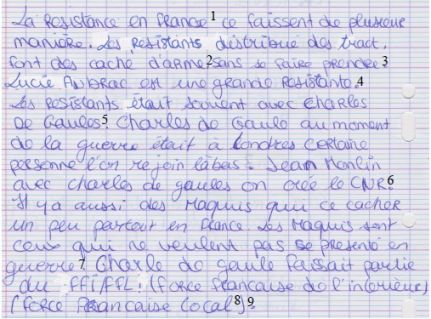 La Resistance en france 1 ce faissent de plusieur
manière. Les Resistants distribue des tract,
font des cache d'arme 2 sans se faire prendre 3
Lucie Aubrac est une grande Resistante. 4
Les Resistants était souvent avec Charles
De Gaules 5 Charles de Gaule au moment
de la guerre était à Londres Certaine
personne l'on rejoin làbas. Jean Monlin
avec Charles de gaules on crée le CNR 6
Il y a aussi des Maquis qui ce cacher
un peu partout en france. Les Maquis sont
ceux qui ne veulent pas se presenté en
guerre 7 Charle de gaule faissait partie
du FFI/FFL. (force francaise de l'interieure)
(force francaise local) 8 9